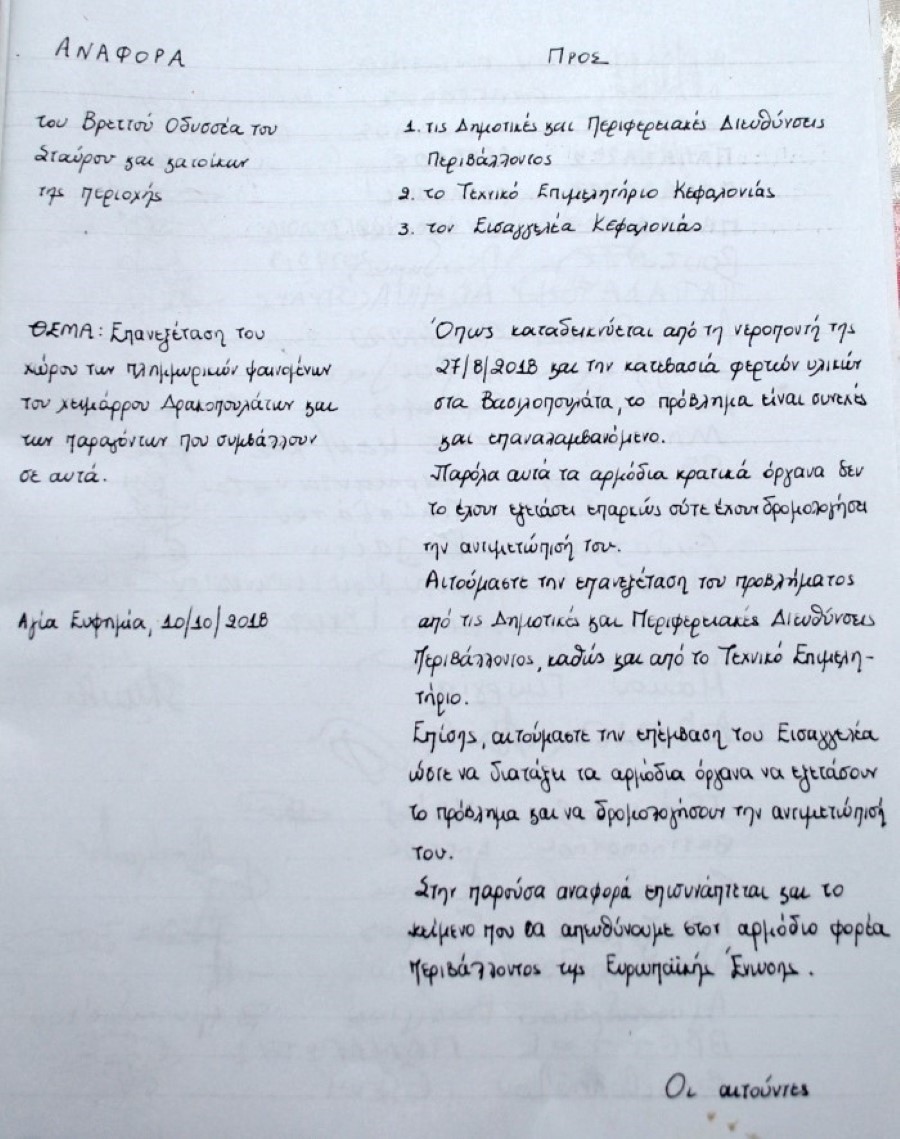 ΑΝΑΦΟΡΑ
του Βρεττού Οδυσσέα του
Σταύρου και κατοίκων
της περιοχής
ΘΕΜΑ: Επανεξέταση του
χώρου των πλημμυρικών φαινομένων
του χειμάρρου Δρακοπουλάτων και
των παραγόντων που συμβάλλουν
σε αυτά.
Αγία Ευφημία, 10/10/2018
ΠΡΟΣ
1. τις Δημοτικές και Περιφερειακές Διευθύνσεις
Περιβάλλοντος
2. το Τεχνικό Επιμελητήριο Κεφαλονιάς
3. τον Εισαγγελέα Κεφαλονιάς
Όπως καταδεικνύεται από τη νεροποντή της
27/8/2018 και την κατεβασιά φερτών υλικών
στα Βασιλοπουλάτα, το πρόβλημα είναι συνεχές
και επαναλαμβανόμενο.
Παρόλα αυτά τα αρμόδια κρατικά όργανα δεν
το έχουν εξετάσει επαρκώς ούτε έχουν δρομολογήσει
την αντιμετώπισή του.
Αιτούμαστε την επανεξέταση του προβλήματος
από τις Δημοτικές και Περιφερειακές Διευθύνσεις
Περιβάλλοντος, καθώς και από το Τεχνικό Επιμελη-
τήριο.
Επίσης, αιτούμαστε την επέμβαση του Εισαγγελέα
ώστε να διατάξει τα αρμόδια όργανα να εξετάσουν
το πρόβλημα και να δρομολογήσουν την αντιμετώπισή
του.
Στην παρούσα αναφορά επισυνάπτεται και το
κείμενο που θα απευθύνουμε στον αρμόδιο φορέα
Περιβάλλοντος της Ευρωπαϊκής Ένωσης.
Οι αιτούντες